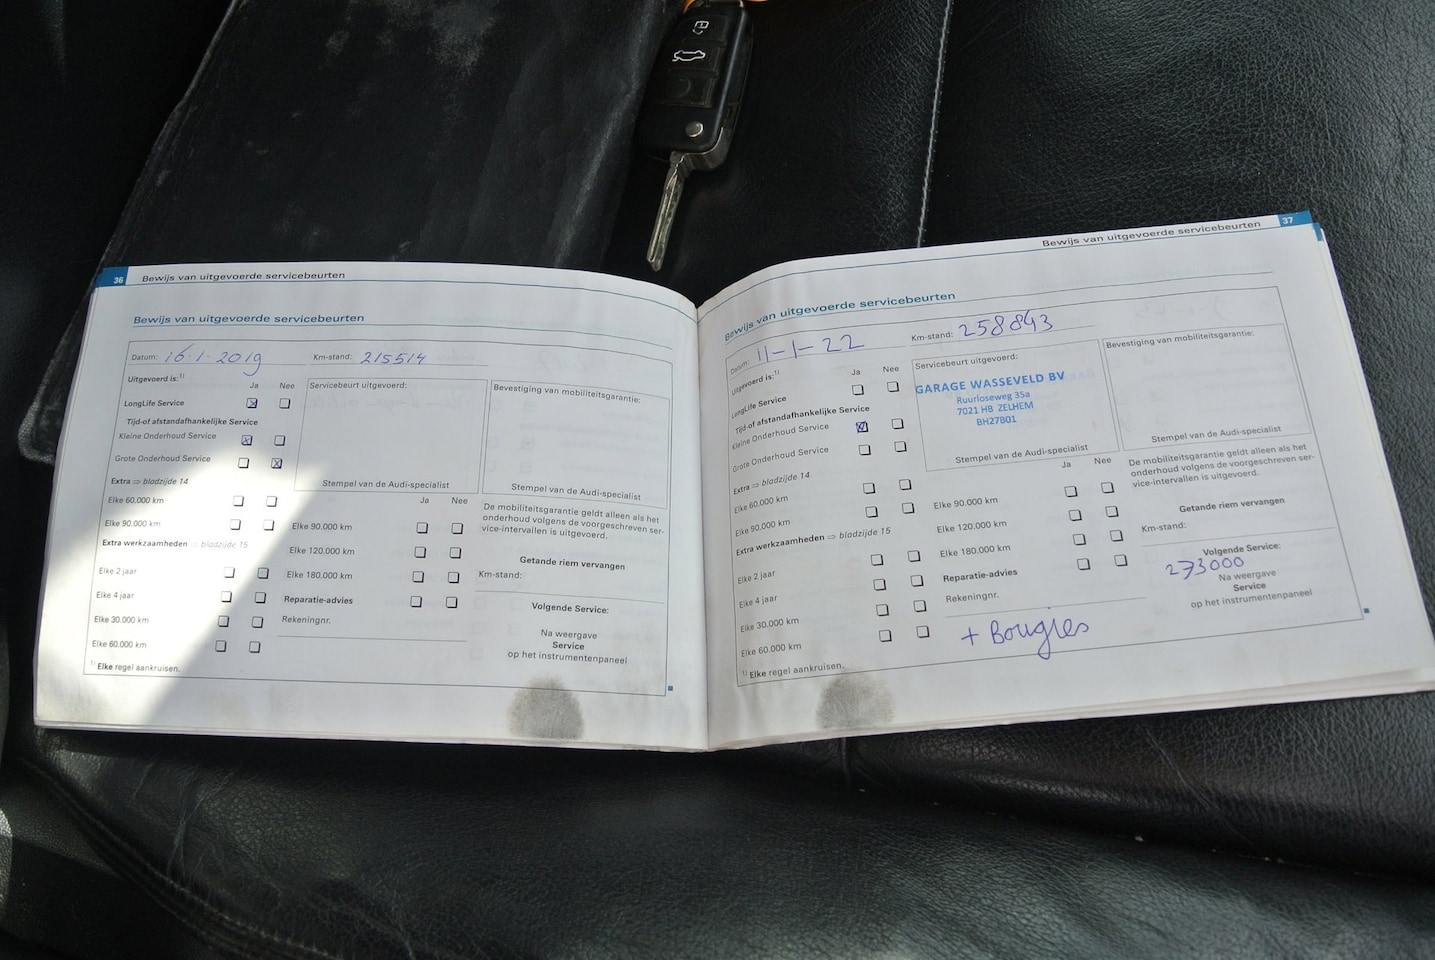 36 Bewijs van uitgevoerde servicebeurten
Bewijs van uitgevoerde servicebeurten
Datum: 16-1-2019 Km-stand: 215514
Uitgevoerd is:1)
Ja Nee
LongLife Service
Tijd-of afstandafhankelijke Service
Kleine Onderhoud Service
Grote Onderhoud Service
Extra ⇒ bladzijde 14
Elke 60.000 km
Elke 90.000 km
Extra werkzaamheden ⇒ bladzijde 15
Elke 2 jaar
Elke 4 jaar
Elke 30.000 km
Elke 60.000 km
1) Elke regel aankruisen.
Servicebeurt uitgevoerd:
Stempel van de Audi-specialist
Ja Nee
Elke 90.000 km
Elke 120.000 km
Elke 180.000 km
Reparatie-advies
Rekeningnr.
Bevestiging van mobiliteitsgarantie:
Stempel van de Audi-specialist
De mobiliteitsgarantie geldt alleen als het
onderhoud volgens de voorgeschreven ser-
vice-intervallen is uitgevoerd.
Getande riem vervangen
Km-stand:
Volgende Service:
Na weergave
Service
op het instrumentenpaneel
Bewijs van uitgevoerde servicebeurten 37
Bewijs van uitgevoerde servicebeurten
Datum: 11-1-22 Km-stand: 258843
Uitgevoerd is:1)
Ja Nee
LongLife Service
Tijd-of afstandafhankelijke Service
Kleine Onderhoud Service
Grote Onderhoud Service
Extra ⇒ bladzijde 14
Elke 60.000 km
Elke 90.000 km
Extra werkzaamheden ⇒ bladzijde 15
Elke 2 jaar
Elke 4 jaar
Elke 30.000 km
Elke 60.000 km
1) Elke regel aankruisen.
Servicebeurt uitgevoerd:
GARAGE WASSEVELD BV
Ruurloseweg 35a
7021 HB ZELHEM
BH27B01
Stempel van de Audi-specialist
Ja Nee
Elke 90.000 km
Elke 120.000 km
Elke 180.000 km
Reparatie-advies
Rekeningnr.
+ Bougies
Bevestiging van mobiliteitsgarantie:
Stempel van de Audi-specialist
De mobiliteitsgarantie geldt alleen als het
onderhoud volgens de voorgeschreven ser-
vice-intervallen is uitgevoerd.
Getande riem vervangen
Km-stand:
Volgende Service:
273000
Na weergave
Service
op het instrumentenpaneel